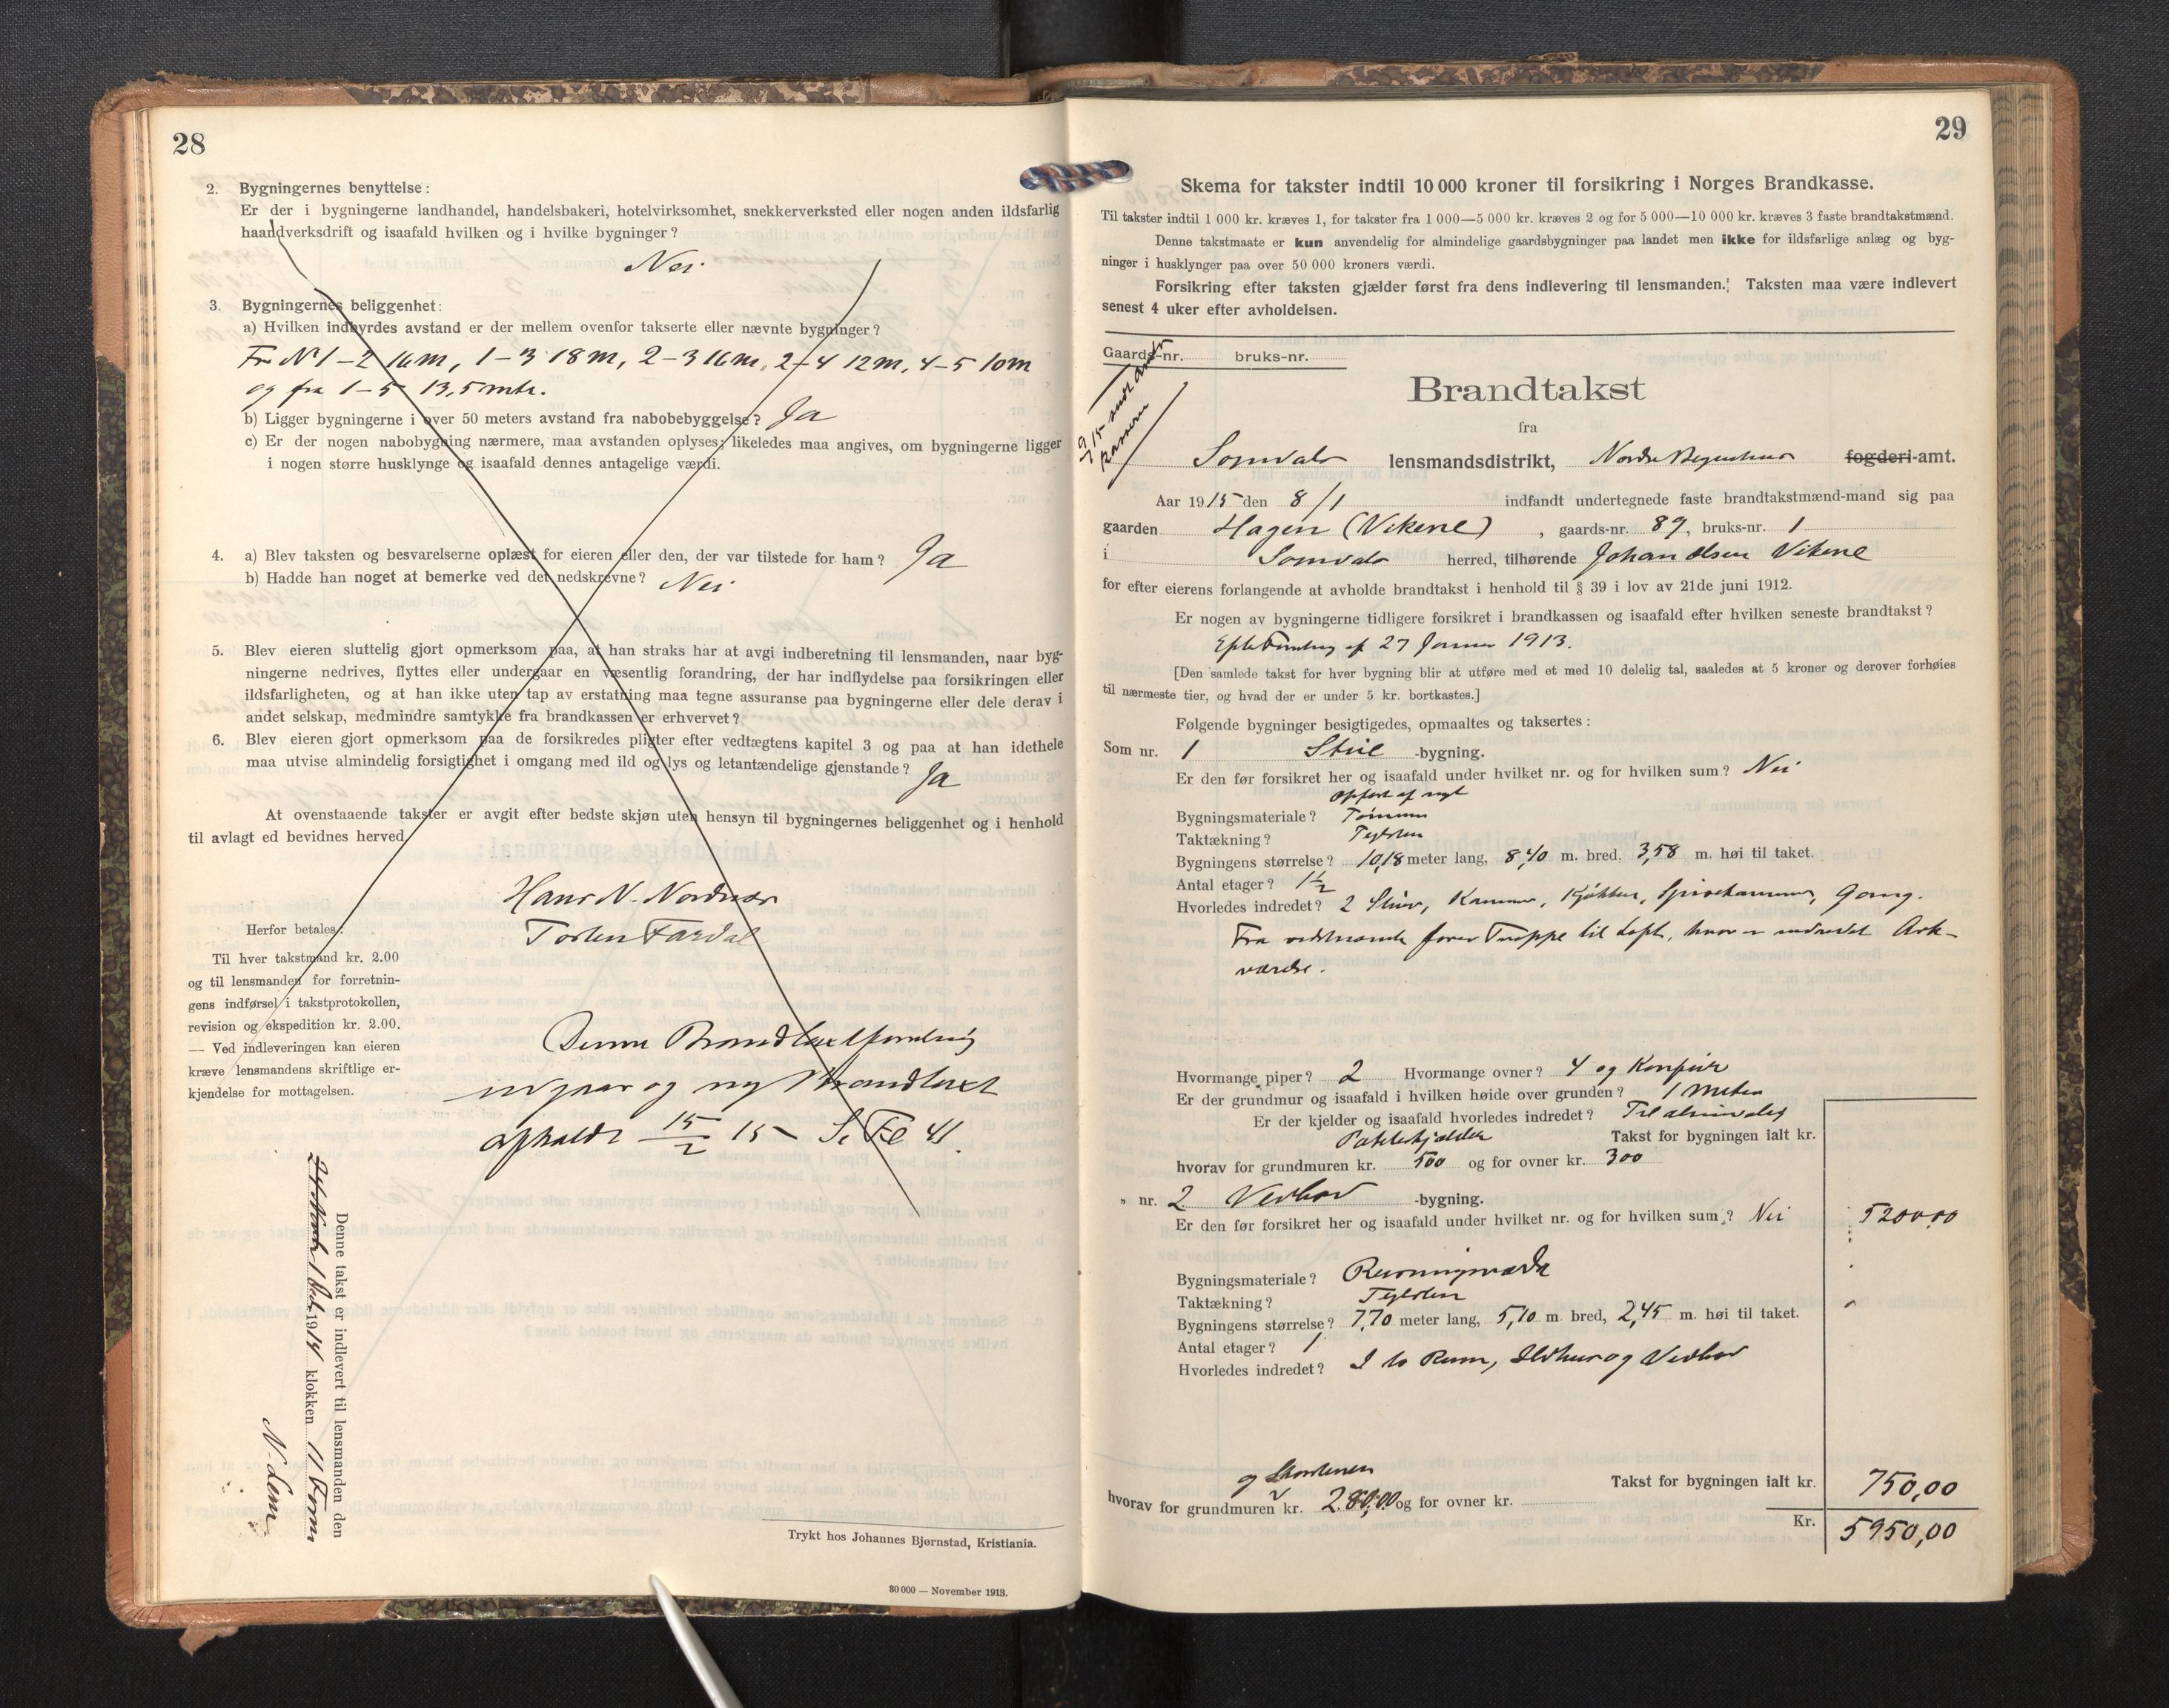 28
2. Bygningernes benyttelse:
Er der i bygningerne landhandel, handelsbakeri, hotelvirksomhet, snekkerverksted eller nogen anden ildsfarlig
haandverksdrift og isaafald hvilken og i hvilke bygninger?
Nei
3. Bygningernes beliggenhet:
a) Hvilken indbyrdes avstand er der mellem ovenfor takserte eller nævnte bygninger?
Fra No 1-2 16m, 1-3 18m, 2-3 16m, 2-4 12m, 4-5 10m
og fra 1-5 13,5 mtr.
b) Ligger bygningerne i over 50 meters avstand fra nabobebyggelse? Ja
c) Er der nogen nabobygning nærmere, maa avstanden oplyses; likeledes maa angives, om bygningerne ligger
i nogen større husklynge og isaafald dennes antagelige værdi.
4. a) Blev taksten og besvarelserne oplæst for eieren eller den, der var tilstede for ham? Ja
b) Hadde han noget at bemerke ved det nedskrevne? Nei
5. Blev eieren sluttelig gjort opmerksom paa, at han straks har at avgi indberetning til lensmanden, naar byg-
ningerne nedrives, flyttes eller undergaar en væsentlig forandring, der har indflydelse paa forsikringen eller
ildsfarligheten, og at han ikke uten tap av erstatning maa tegne assuranse paa bygningerne eller dele derav i
andet selskap, medmindre samtykke fra brandkassen er erhvervet?
6. Blev eieren gjort opmerksom paa de forsikredes pligter efter vedtægtens kapitel 3 og paa at han idethele
maa utvise almindelig forsigtighet i omgang med ild og lys og letantændelige gjenstande? Ja
At ovenstaaende takster er avgit efter bedste skjøn uten hensyn til bygningernes beliggenhet og i henhold
til avlagt ed bevidnes herved.
Hans N. Nordnæs
Torsten Fardal
Herfor betales:
Til hver takstmand kr. 2.00
og til lensmanden for forretnin-
gens indførsel i takstprotokollen,
revision og ekspedition kr. 2.00.
— Ved indleveringen kan eieren
kræve lensmandens skriftlige er-
kjendelse for mottagelsen.
Denne
og ny Brandtaxt
afholdt 15/2 15
Denne takst er indlevert til lensmanden den
1914 klokken 11 Form
N. Lem
Trykt hos Johannes Bjørnstad, Kristiania.
30 000 — November 1913.
29
Skema for takster indtil 10 000 kroner til forsikring i Norges Brandkasse.
Til takster indtil 1 000 kr. kræves 1, for takster fra 1 000—5 000 kr. kræves 2 og for 5 000—10 000 kr. kræves 3 faste brandtakstmænd.
Denne takstmaate er kun anvendelig for almindelige gaardsbygninger paa landet men ikke for ildsfarlige anlæg og byg-
ninger i husklynger paa over 50 000 kroners værdi.
Forsikring efter taksten gjælder først fra dens indlevering til lensmanden. Taksten maa være indlevert
senest 4 uker efter avholdelsen.
Gaards-nr. bruks-nr.
Brandtakst
fra
Sogndals lensmandsdistrikt, Nordre Bergenhus fogderi-amt.
Aar 1915 den 8/1 indfandt undertegnede faste brandtakstmænd-mand sig paa
gaarden Hagen (Vikene), gaards-nr. 89, bruks-nr. 1
i Sogndals herred, tilhørende Johan Olsen Vikene
for efter eierens forlangende at avholde brandtakst i henhold til § 39 i lov av 21de juni 1912.
Er nogen av bygningerne tidligere forsikret i brandkassen og isaafald efter hvilken seneste brandtakst?
af 27 Januar 1913.
[Den samlede takst for hver bygning blir at utføre med et med 10 delelig tal, saaledes at 5 kroner og derover forhøies
til nærmeste tier, og hvad der er under 5 kr. bortkastes.]
Følgende bygninger besigtigedes, opmaaltes og taksertes:
Som nr. 1 Stue -bygning.
Er den før forsikret her og isaafald under hvilket nr. og for hvilken sum? Nei
opført af nyt
Bygningsmateriale? Tømmer
Taktækning? Teglsten
Bygningens størrelse? 10,18 meter lang, 8,40 m. bred, 3,58 m. høi til taket.
Antal etager? 1½
Hvorledes indredet? 2 Stuer, Kammer, Kjøkken, Spisekammer, Gang.
Fra fører Trappe til Loft, hvor er indredet Ark-
værelse.
Hvormange piper? 2 Hvormange ovner? 4 og Komfuir
Er der grundmur og isaafald i hvilken høide over grunden? 1 Meter
Er der kjelder og isaafald hvorledes indredet? Til almindelig
Potetkjælder Takst for bygningen ialt kr.
hvorav for grundmuren kr. 500 og for ovner kr. 300
„ nr. 2 Vedbod -bygning.
Er den før forsikret her og isaafald under hvilket nr. og for hvilken sum? Nei 5200,00
Bygningsmateriale? Reisningsværk
Taktækning? Teglsten
Bygningens størrelse? 7,70 meter lang, 5,10 m. bred, 2,45 m. høi til taket.
Antal etager? 1
Hvorledes indredet? I to Rum, Ildhus og Vedbod
og Skorstenen Takst for bygningen ialt kr. 750,00
hvorav for grundmuren kr. 280,00 og for ovner kr.
Kr. 5950,00